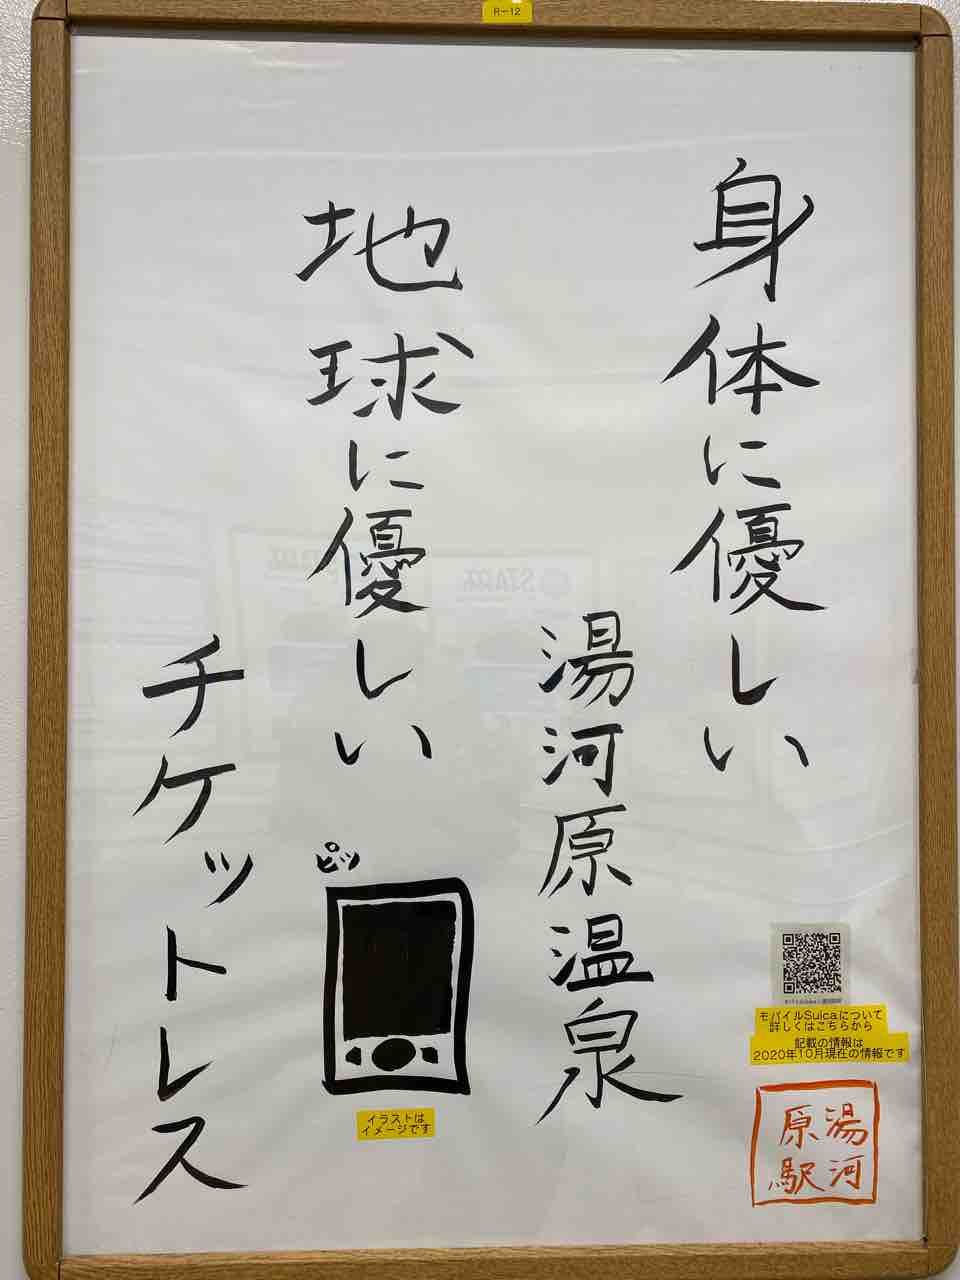 R-12
身体に優しい
湯河原温泉
地球に優しい
チケットレス
ピッ
イラストは
イメージです
モバイルSuicaについて
詳しくはこちらから
記載の情報は
2020年10月現在の情報です
湯河
原駅